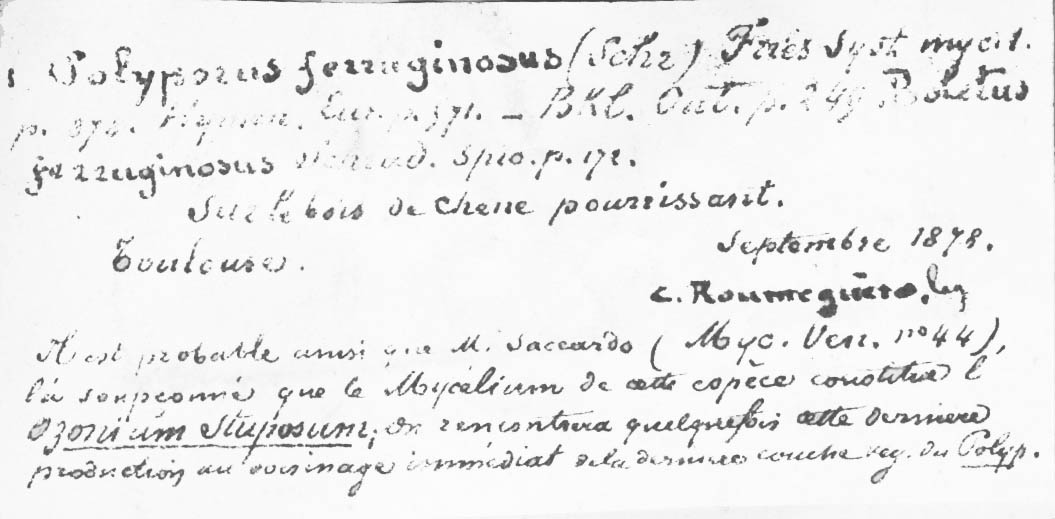 Polyporus ferruginosus (Schr) Fries Syst myc 1.
p. 378. Hymen. Eur. p. 571. — BKl. Out. p. 249 Boletus
ferruginosus Schrad. Spic. p. 172.
Sur le bois de chene pourrissant.
Septembre 1878.
Toulouse.
C. Roumeguère. leg
Il est probable ainsi que M. Saccardo (Myc. Ven. no 44),
l'a soupçonné que le Mycélium de cette espèce constitue l
Ozonium stuposum; on rencontrera quelquefois cette derniere
production au voisinage immédiat de la derniere couche veg. du Polyp.